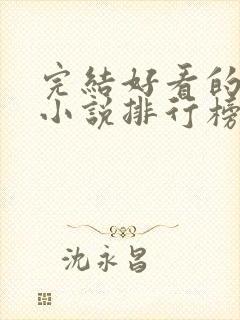 完結好看的
小說排行榜
沈永昌